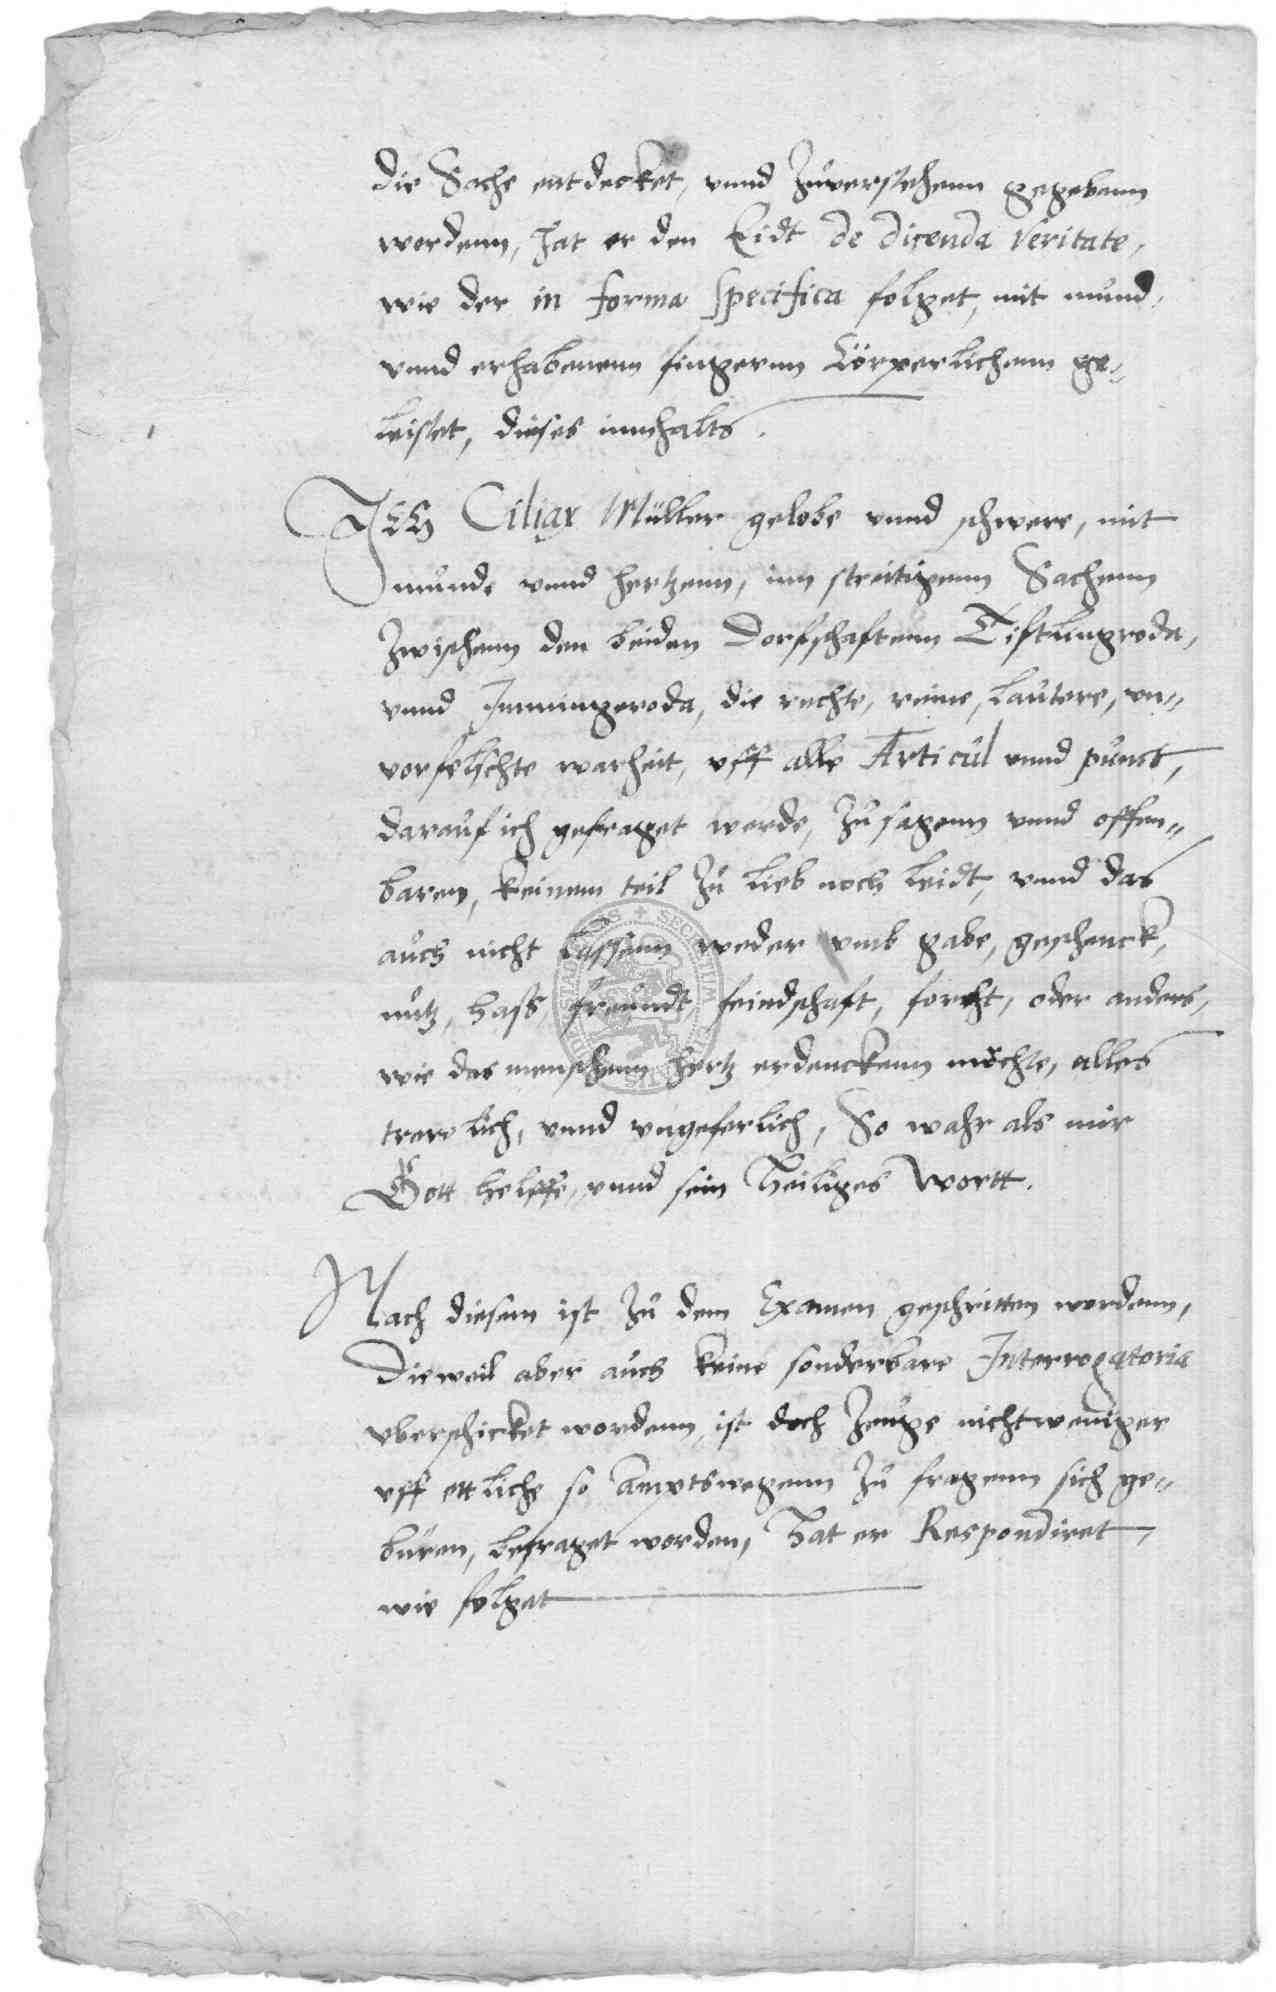 die Sache entdecket, vnnd Zuverstehenn gegebenn
wordenn, hat er den Eidt de dicenda veritate,
wie der in forma specifica folget, mit mund,
vnnd erhabenenn fingernn Cörperlichenn ge-
leistet, dieses innhalts.
ICH Ciliax Müller gelobe vnnd schwere, mit
munde vnnd hertzenn, inn streitigenn Sachenn
Zwischenn den beiden Dorfschafftenn Tistlingroda,
vnnd Immingeroda, die rechte, reine, lautere, vn-
vorfelschte warheit, vff alle Articul vnnd punct,
darauf ich gefraget werde, Zu sagenn vnnd offen-
baren, keinem teil Zu lieb noch leidt, vnnd das
auch nicht lassenn weder vmb gabe, geschenck,
nutz, hass, freundt, feindschaft, forcht, oder anders,
wie das menschenn hertz erdenckenn möchte, alles
trewlich, vnnd vngeferlich, So wahr als mir
Gott helffe, vnnd sein heiliges wortt.
Nach diesem ist Zu dem Examen geschritten wordenn,
Dieweil aber auch keine sonderbare Interrogatoria
vberschicket wordenn, ist doch Zeuge nichtweniger
vff ettliche so amptswegenn Zu fragenn sich ge-
büren, befraget worden, hat er Respondiret,
wie folget
SECRETUM